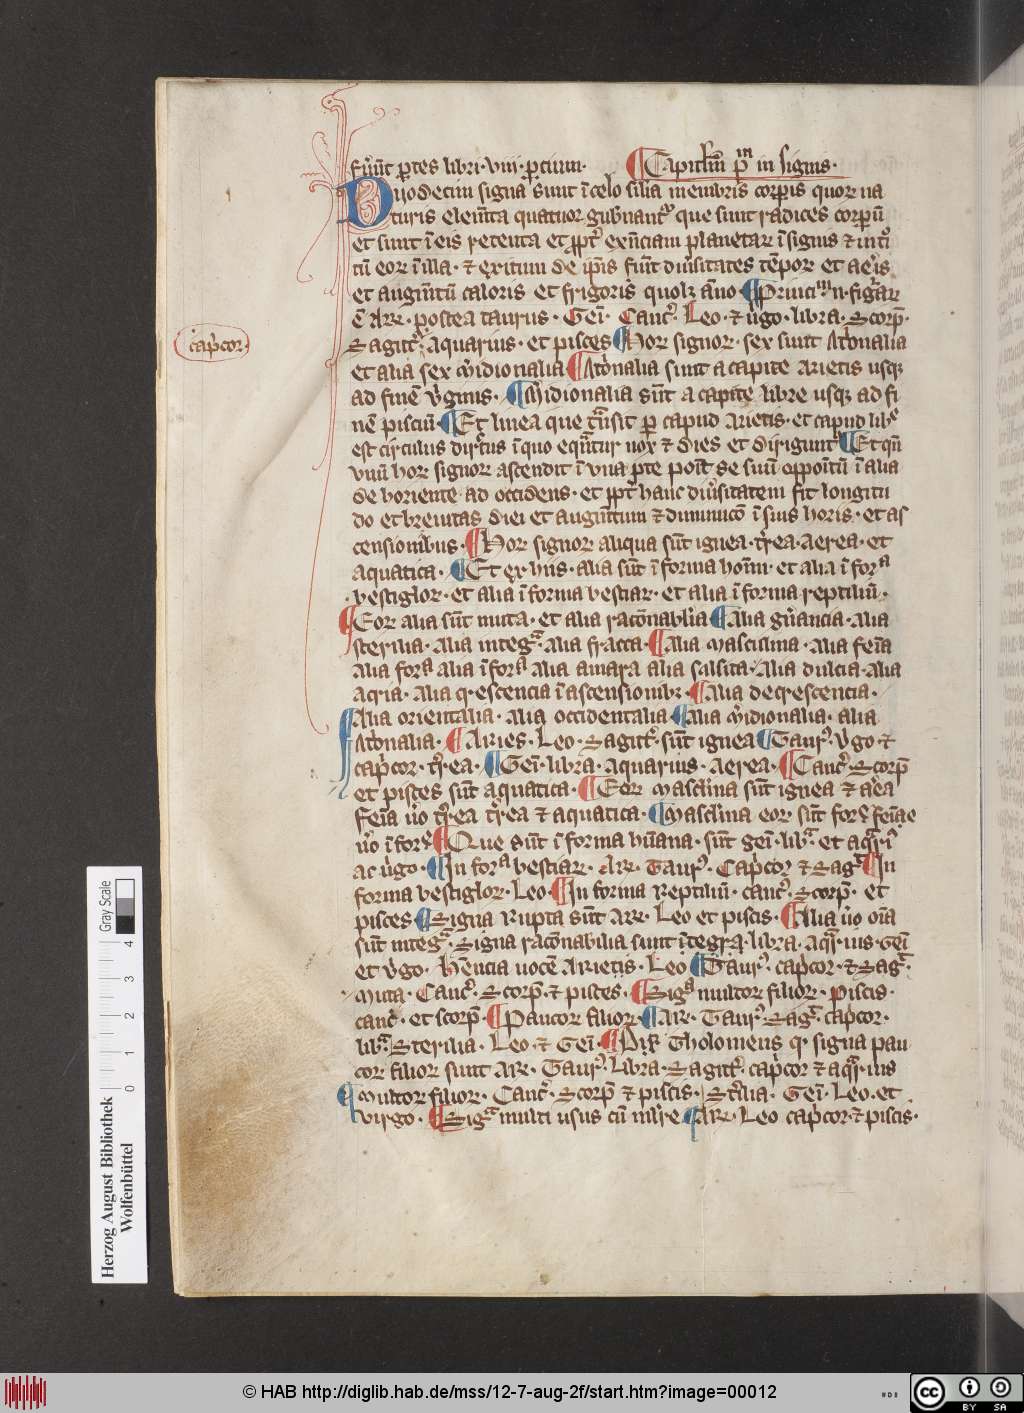 fiunt ptes libri viii ptium. Capitlm pm in signis.
Duodecim signa sunt i celo silia membris corpis quor na
turis elemta quatuor gubnant que sunt radices corpum
et sunt i eis retenta et ppt exnciam planetar i signis et introi
tu eor i illa. et exitum de ipis fiunt divsitates tepor et aeris
et augmtu caloris et frigoris quolz anno Princim n figrar
e Are. postea taurus. Gei. Canc. Leo. et vgo. libra. Scorp.
capcor.
Sagitt. aquarius. et pisces Hor signor. sex sunt
et alia sex midionalia sunt a capite Arietis usq
ad fine virginis. Midionalia sunt a capite libre usq ad fi
ne pisciu. Et linea que tnsit p capud Arietis. et capud libe
est circulus i quo nox et dies et diriguntur Et
unu hor signor ascendit i una pte se suu i alia
de horiente ad occidens. et ppt hanc divsitatem fit longitu
do et brevitas diei et augmtum et i suis horis. et as
censionibus. Hor signor aliqua sunt ignea. trea. aerea. et
aquatica. Et ex hiis. alia sunt i forma hom. et alia i fora
. et alia i forma bestiar. et alia i forma reptiliu.
Eor alia sunt muta. et alia raconablia Alia alia
sterilia. alia integra. alia fracta. Alia masculina. alia feia
alia fora alia i fora alia amara alia salsita. alia dulcia. alia
acria. alia qrescencia i ascensionibz. Alia deqrescencia.
Alia orientalia. alia occidentalia Alia midionalia. alia
Aries. Leo. Sagitt. sunt ignea Taur. vgo. et
capcor. trea. Gei. libra. aquarius. aerea. Canc. Scorp
et pisces sunt aquatica. Eor masclina sunt ignea et aea
feia uo trea trea et aquatica. masclina eor. sunt feiae
uo Que sunt i forma humana. sunt gei. libra. et
ac vgo. In fora bestiar. Are. Taur. Capcor et Sagr In
forma Leo. In forma reptiliu. canc. Scorp. et
pisces Signa rupta sunt Are. Leo et piscis. Alia uo oia
sunt integra. Signa raconabilia sunt itegra. libra. aqrius. Gei
et vgo. hencia voce Arietis. Leo Taur. capcor. et Sagr.
Muta. Canc. Scorp. et pisces. Siga multor filior. piscis.
canc. et scorp. Paucor filior. Are. Taur. Sagr. capcor.
libra. Sterilia. Leo. et Gei. Tholomeus q signa pau
cor filior sunt Are. Taur. libra. Sagitt. capcor et aqrius
Multor filior. Canc. Scorp et piscis. Strilia. Gei. Leo. et
virgo. Siga multi usus cu mlre Are. Leo capcor. et piscis.
Herzog August Bibliothek
Wolfenbüttel
0 1 2 3 4
Gray Scale
© HAB http://diglib.hab.de/mss/12-7-aug-2f/start.htm?image=00012
cc BY SA